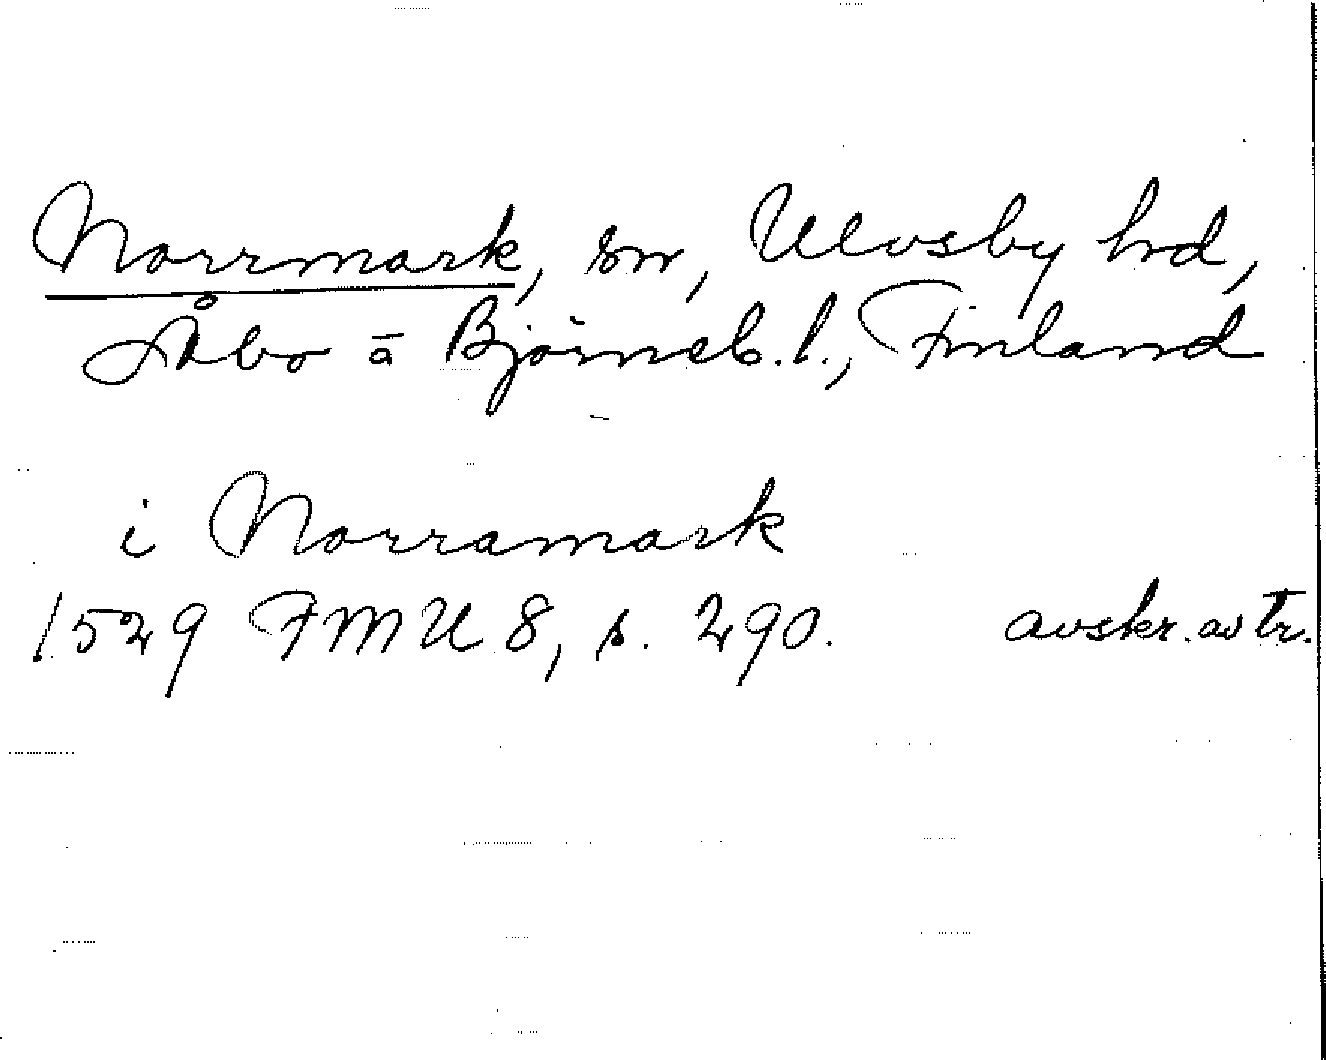 Norrmark, sn, Ulvsby hd,
Åbo ā Björneb. l., Finland
i Norramark
1529 FMU 8, s. 290. avskr. av tr.